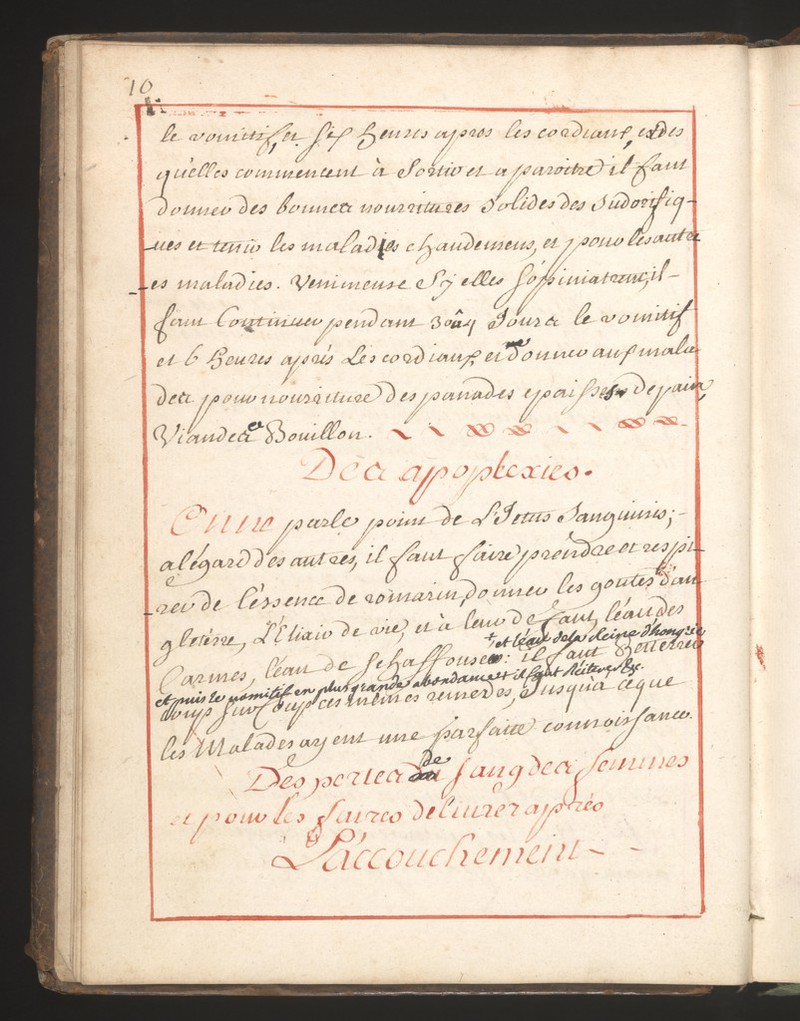 10
le vomitif, et six heures apres les cordiaux, et des
qu'elles commencent à Sortir et a paroitre il faut
donner des bonnes nourritures Solides des Sudorifiq-
ues et tenir les malades chaudement, et pour les autr
es maladies. Venimeuse Sy elles s'opiniatrent, il-
faut Continuer pendant 3 ou 4 Jours le vomitif
et 6 heures aprés Les cordiaux, et donner aux mala
des pour nourriture des panades epaisses de pain,
Viandes et Bouillon.
Des apoplexies.
On ne parle point de L'Ictus Sanguinis;-
a légard des autres, il faut faire prendre et respi-
rer de l'éssence de romarin, donner les goutes d'an
gleterre, L'Elixir de vie, et à leur defaut, léau des
+ et léau de la Reine d'hongrie
Carmes, léau de Schaffouse: il faut Reiterer
et puis le vomitif en plus grande abondance et il faut Réiterer &c.
coups sur Coup ces mêmes remedes, Jusqu'à ce que
les Malades ayent une parfaite connoissance.
Des pertes de Sang des femmes
et pour les faires delivrér aprés
L'accouchement-